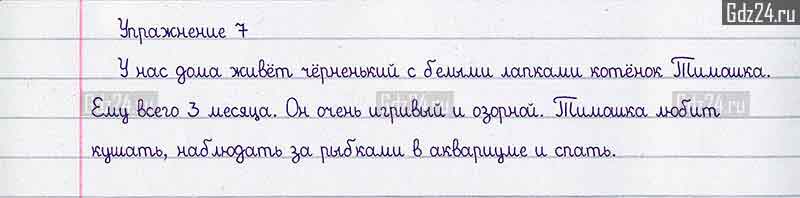 Gdz24.ru
Упражнение 7
У нас дома живёт чёрненький с белыми лапками котёнок Тимашка.
Ему всего 3 месяца. Он очень игривый и озорной. Тимашка любит
кушать, наблюдать за рыбками в аквариуме и спать.
Gdz24.ru
Gdz24.ru